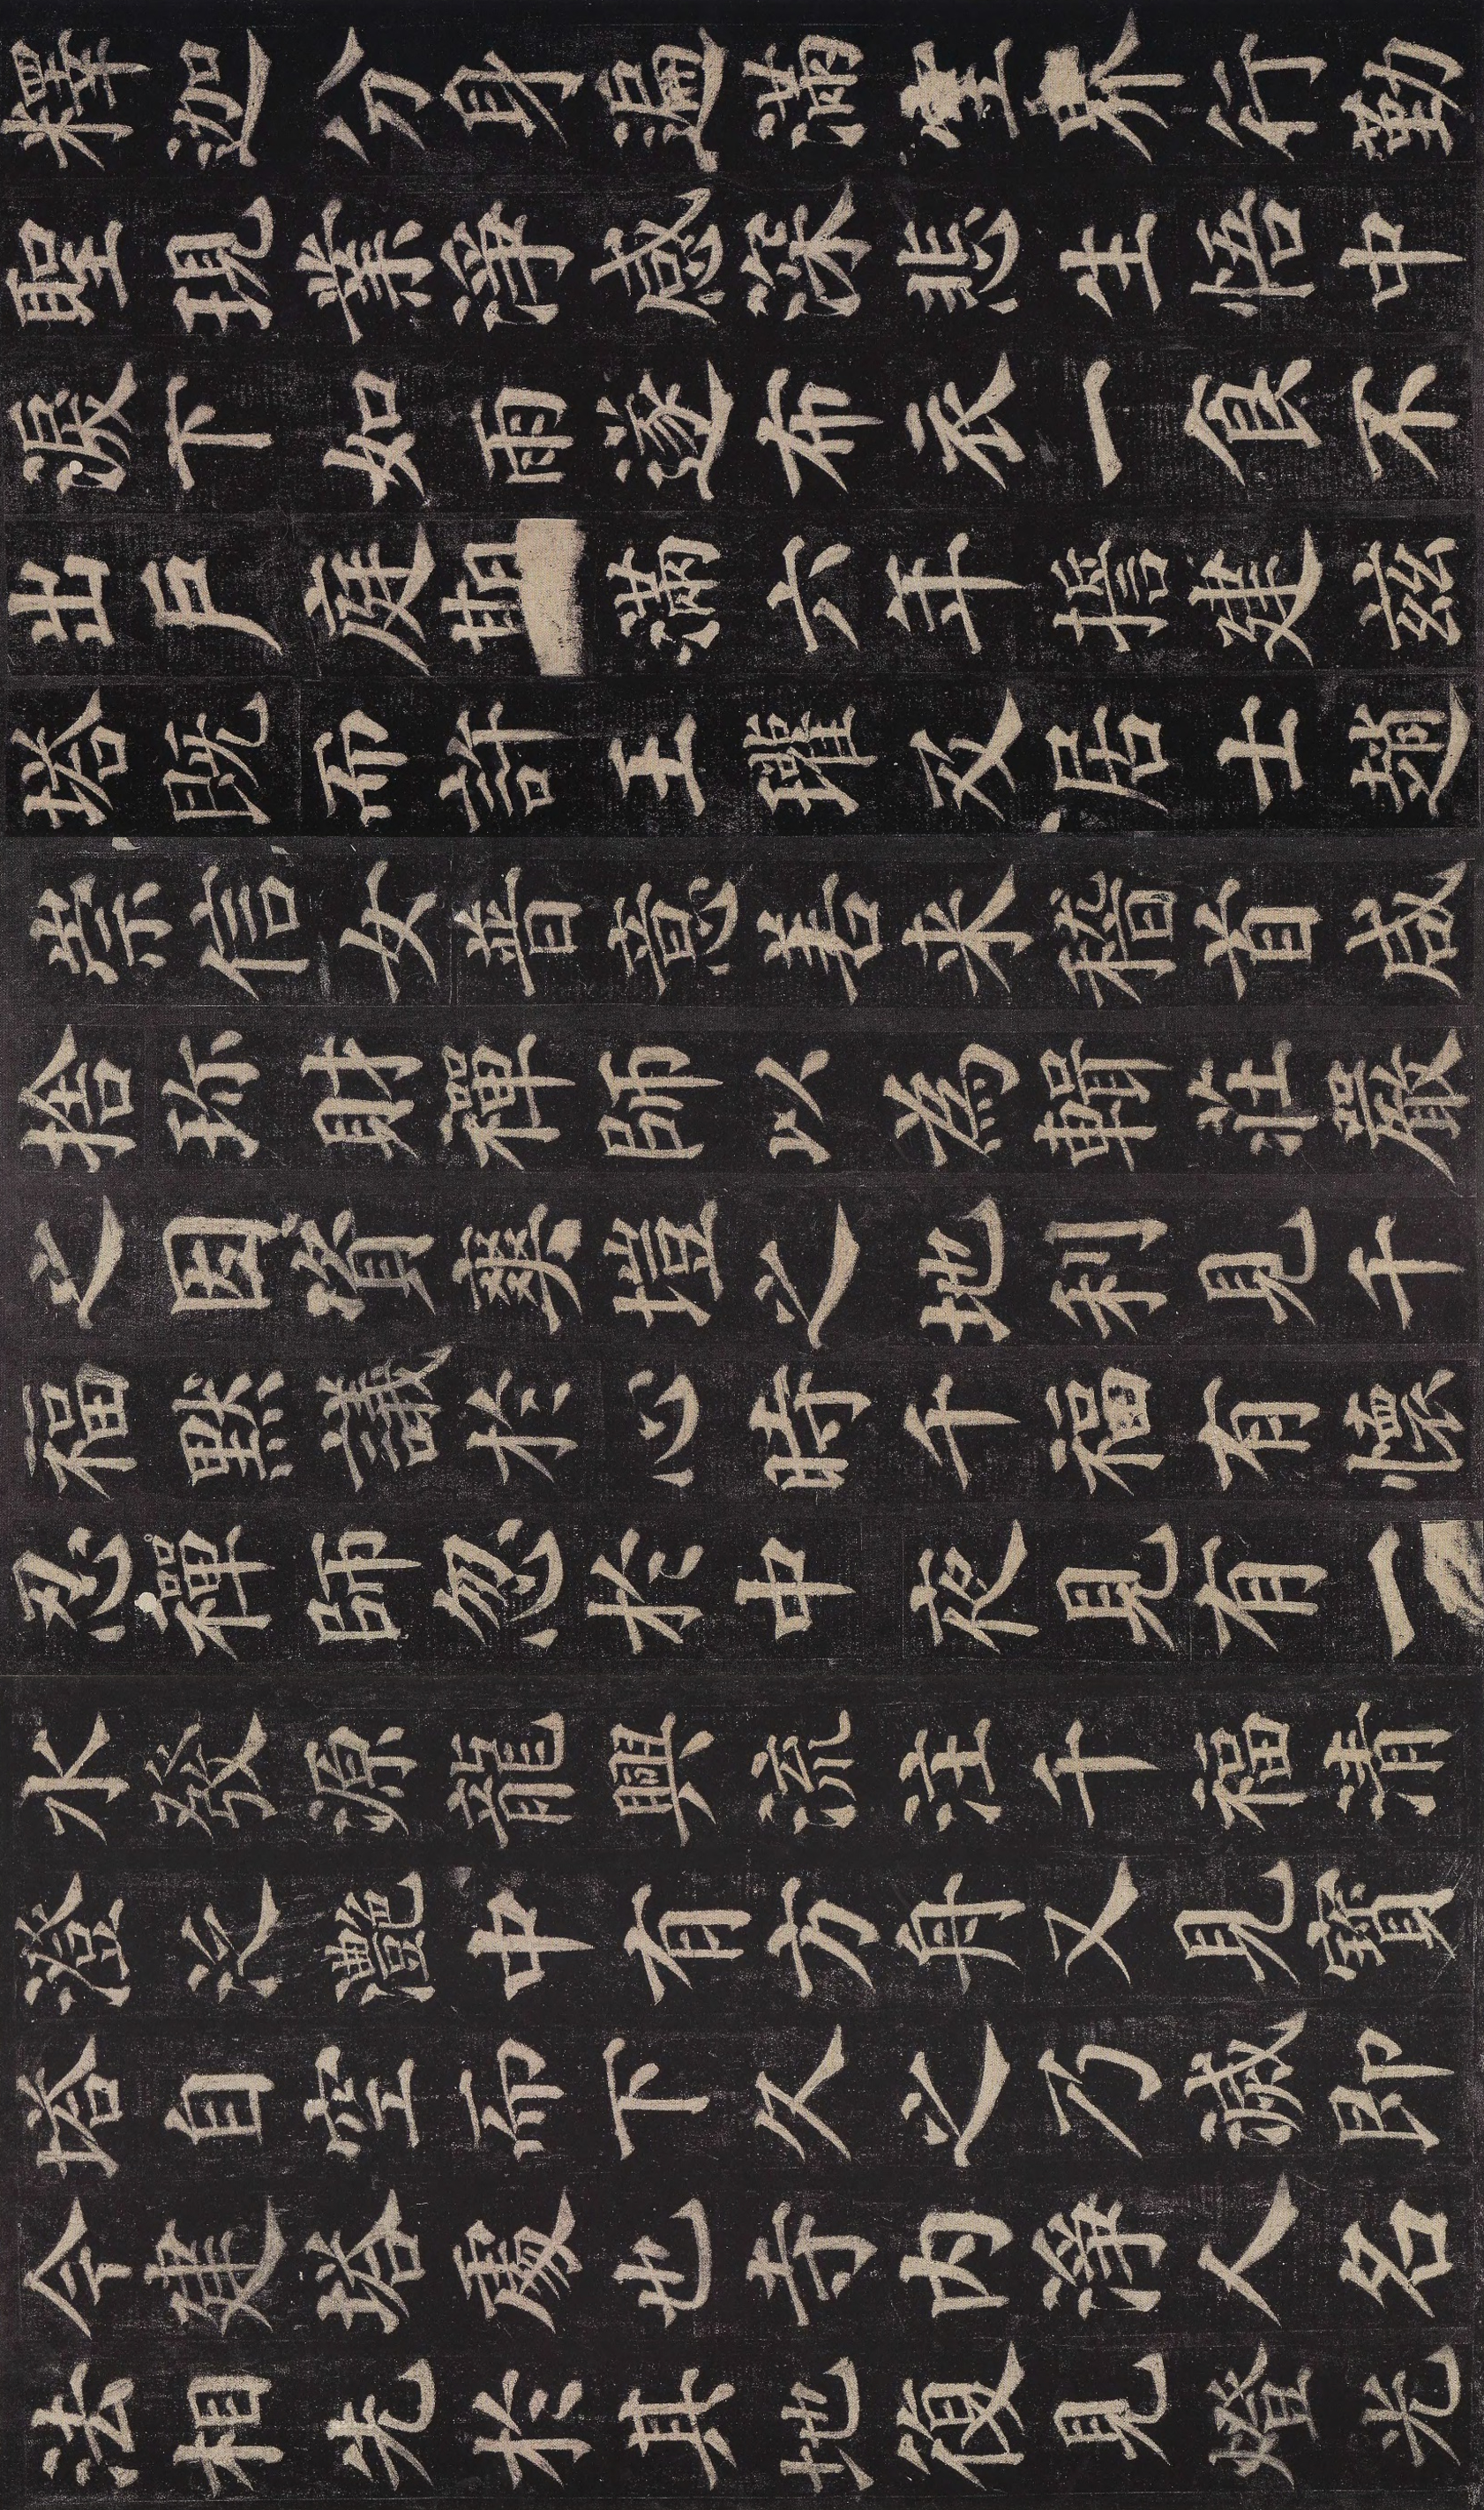 釋迦分身遍滿空界行勤
聖現業淨感深悲生悟中
淚下如雨遂布衣一食不
出戶庭期滿六年誓建茲
塔既而許王瓘及居士趙
崇信女普意善來稽首咸
捨珍財禪師以為輯莊嚴
之因資爽塏之地利見千
福默議於心時千福有懷
忍禪師忽於中夜見有一
水發源龍興流注千福清
澄泛灩中有方舟又見寶
塔自空而下久之乃滅即
今建塔處也寺內淨人名
法相先於其地復見燈光